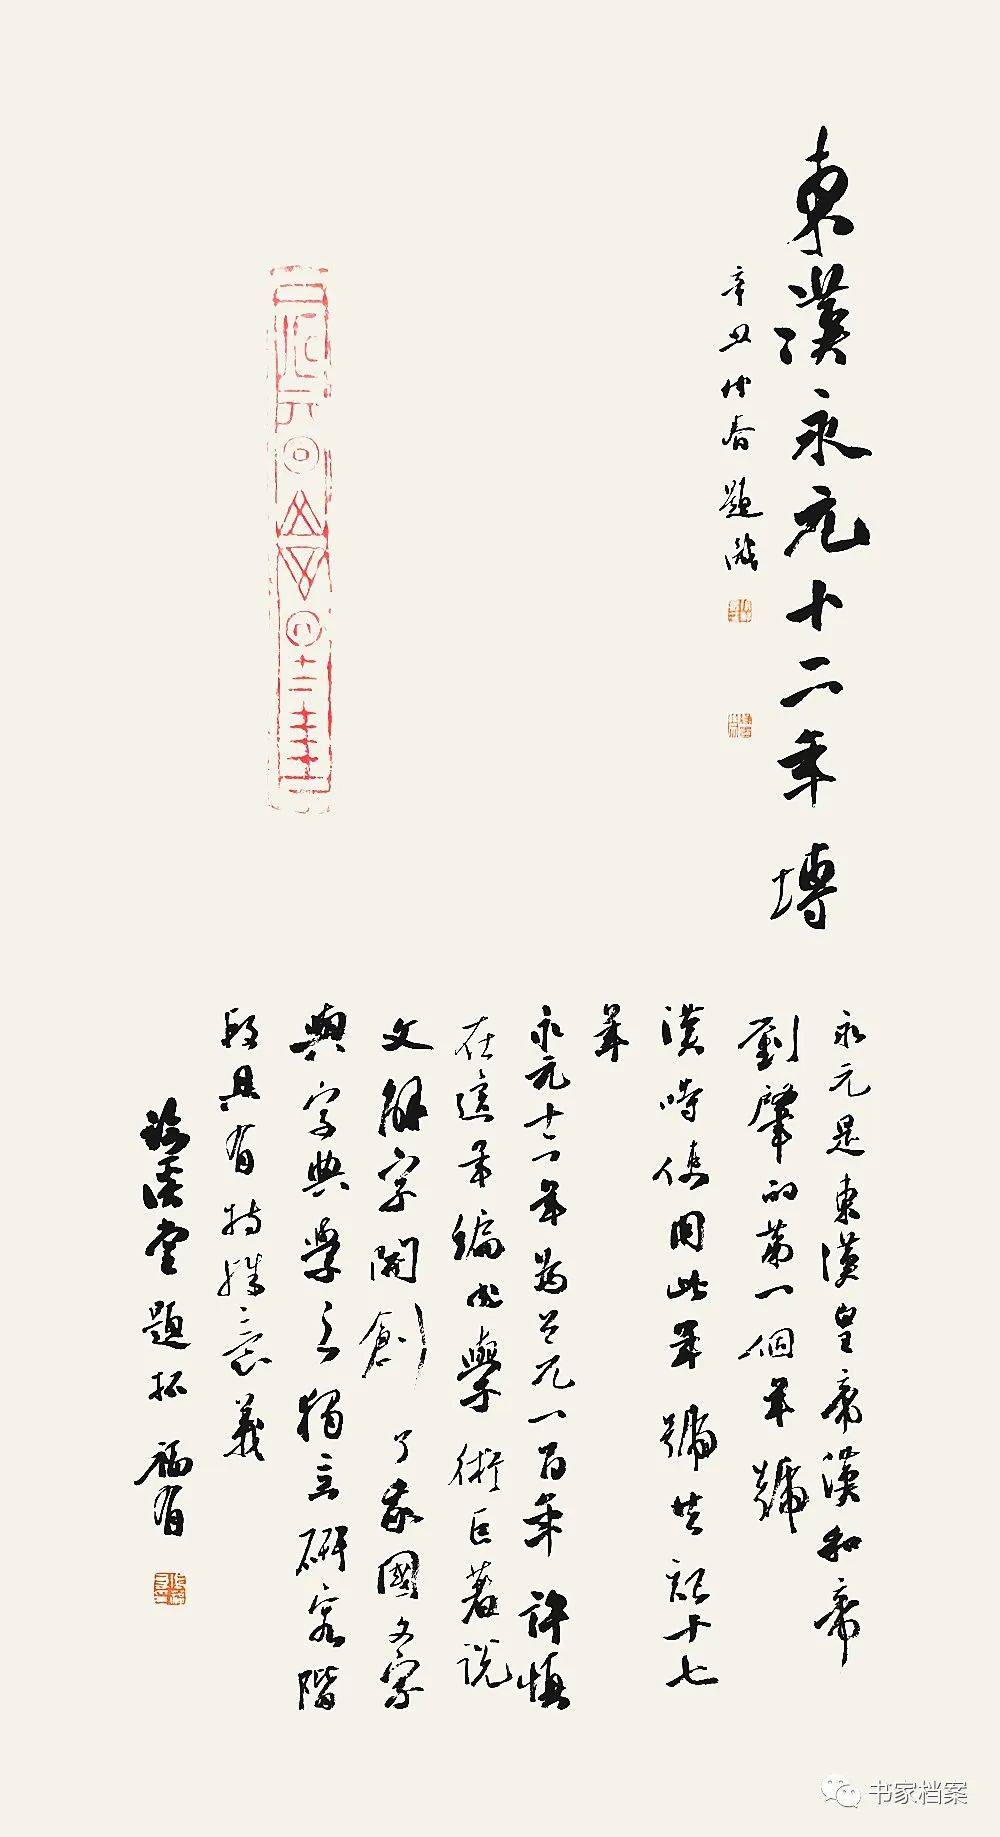 東漢永元十二年塼
辛丑仲春題
永元是東漢皇帝漢和帝
劉肇的第一個年號
漢時使用此年號共記十七
年
永元十二年為公元一百年許慎
在這年編成學術巨著說
文解字開創了我國文字
與字典學之獨立研究階
段具有特殊意義
堂題拓福有
書家档案